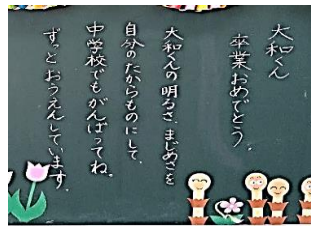 大和くん
卒業おめでとう。
大和くんの明るさ、まじめさを
自分のたからものにして、
中学校でもがんばってね。
ずっとおうえんしています。